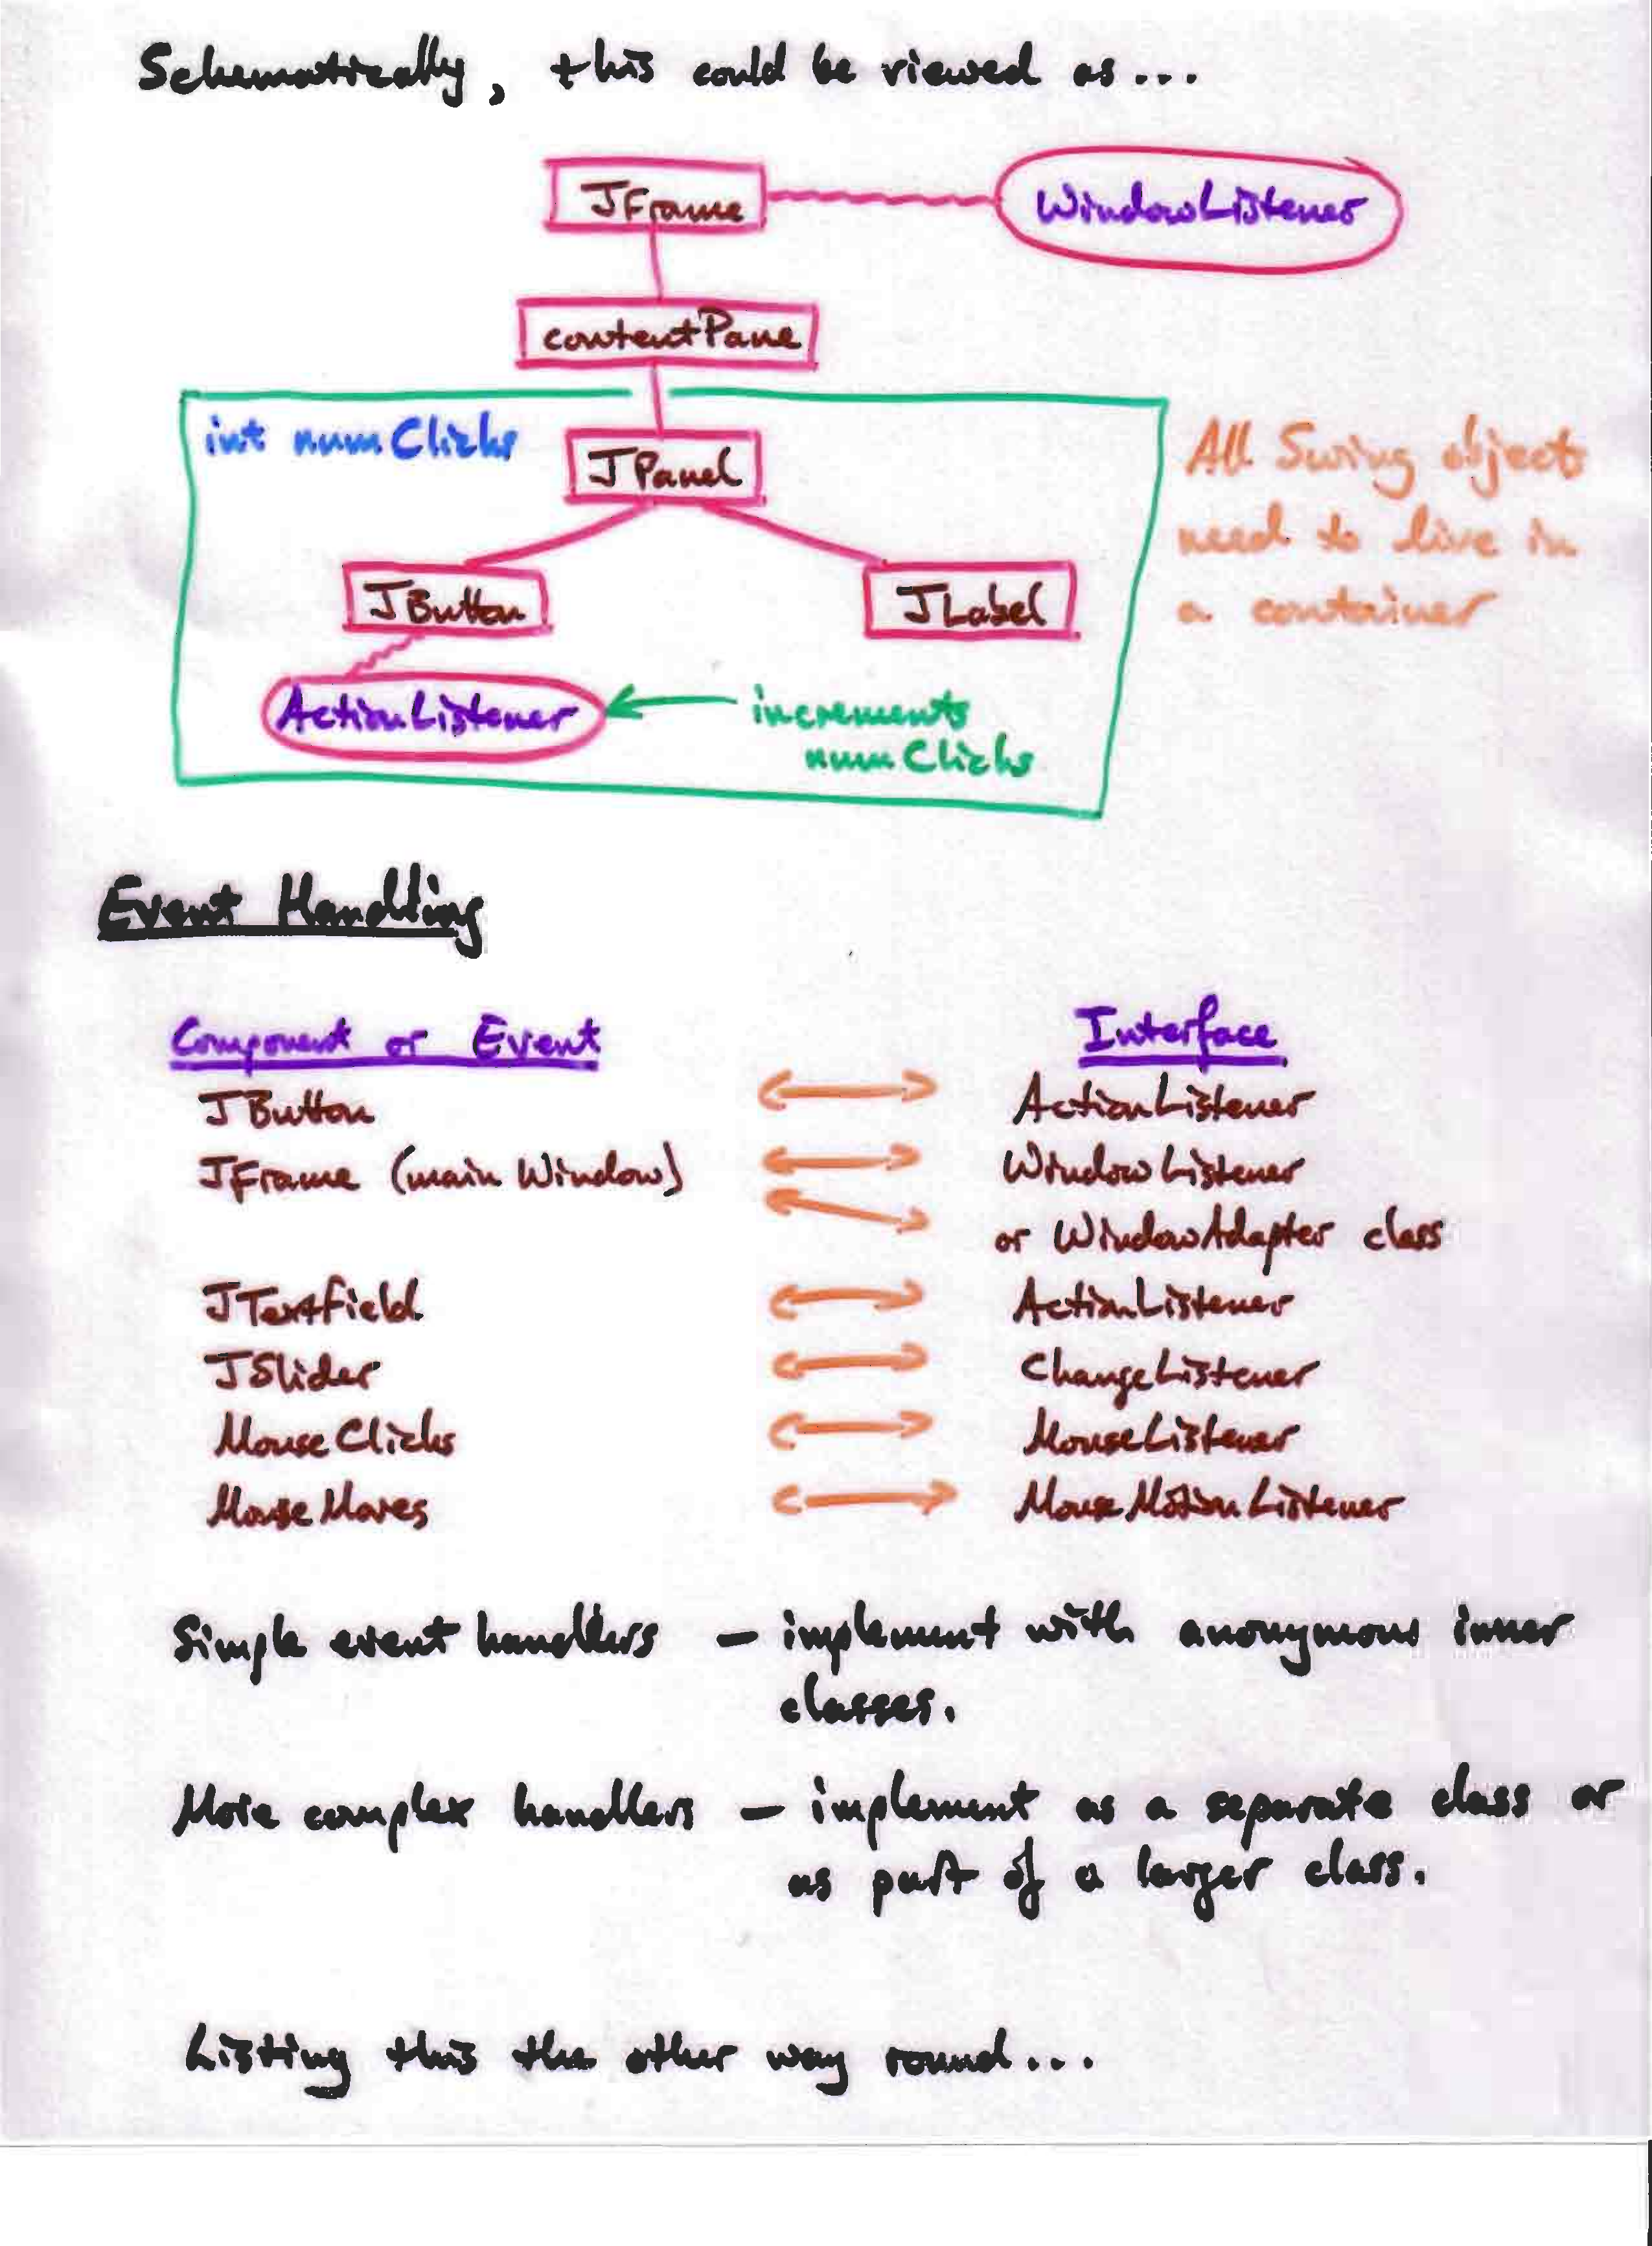 Schematically, this could be viewed as...
JFrame
WindowListener
contentPane
int numClicks
JPanel
All Swing objects
need to live in
a container
JButton
JLabel
ActionListener
increments
numClicks
Event Handling
Component or Event
Interface
JButton
ActionListener
JFrame (main Window)
WindowListener
or WindowAdapter class
JTextfield
ActionListener
JSlider
ChangeListener
MouseClicks
MouseListener
MouseMoves
MouseMotionListener
Simple event handlers — implement with anonymous inner
classes.
More complex handlers — implement as a separate class or
as part of a larger class.
Listing this the other way round...